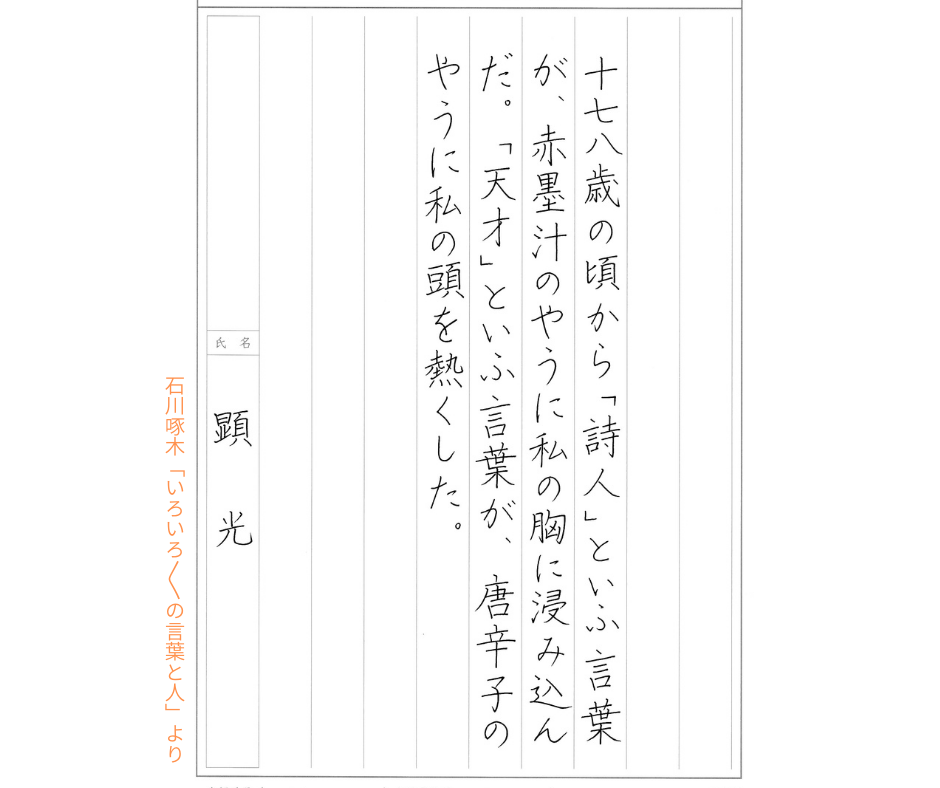 十七八歳の頃から「詩人」といふ言葉
が、赤墨汁のやうに私の胸に浸み込ん
だ。「天才」といふ言葉が、唐辛子の
やうに私の頭を熱くした。
氏名
顕光
石川啄木「いろいろ〱の言葉と人」より